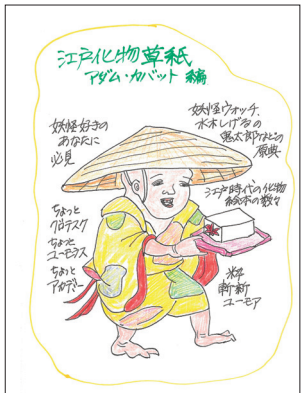 江戸化物草紙
アダム・カバット 編
妖怪好きの
あなたに
必見
妖怪ウォッチ、
水木しげるの
鬼太郎などの
原典
江戸時代の化物
絵本の数々
ちょっと
グロテスク
ちょっと
ユーモラス
ちょっと
粋
斬新
ユーモア